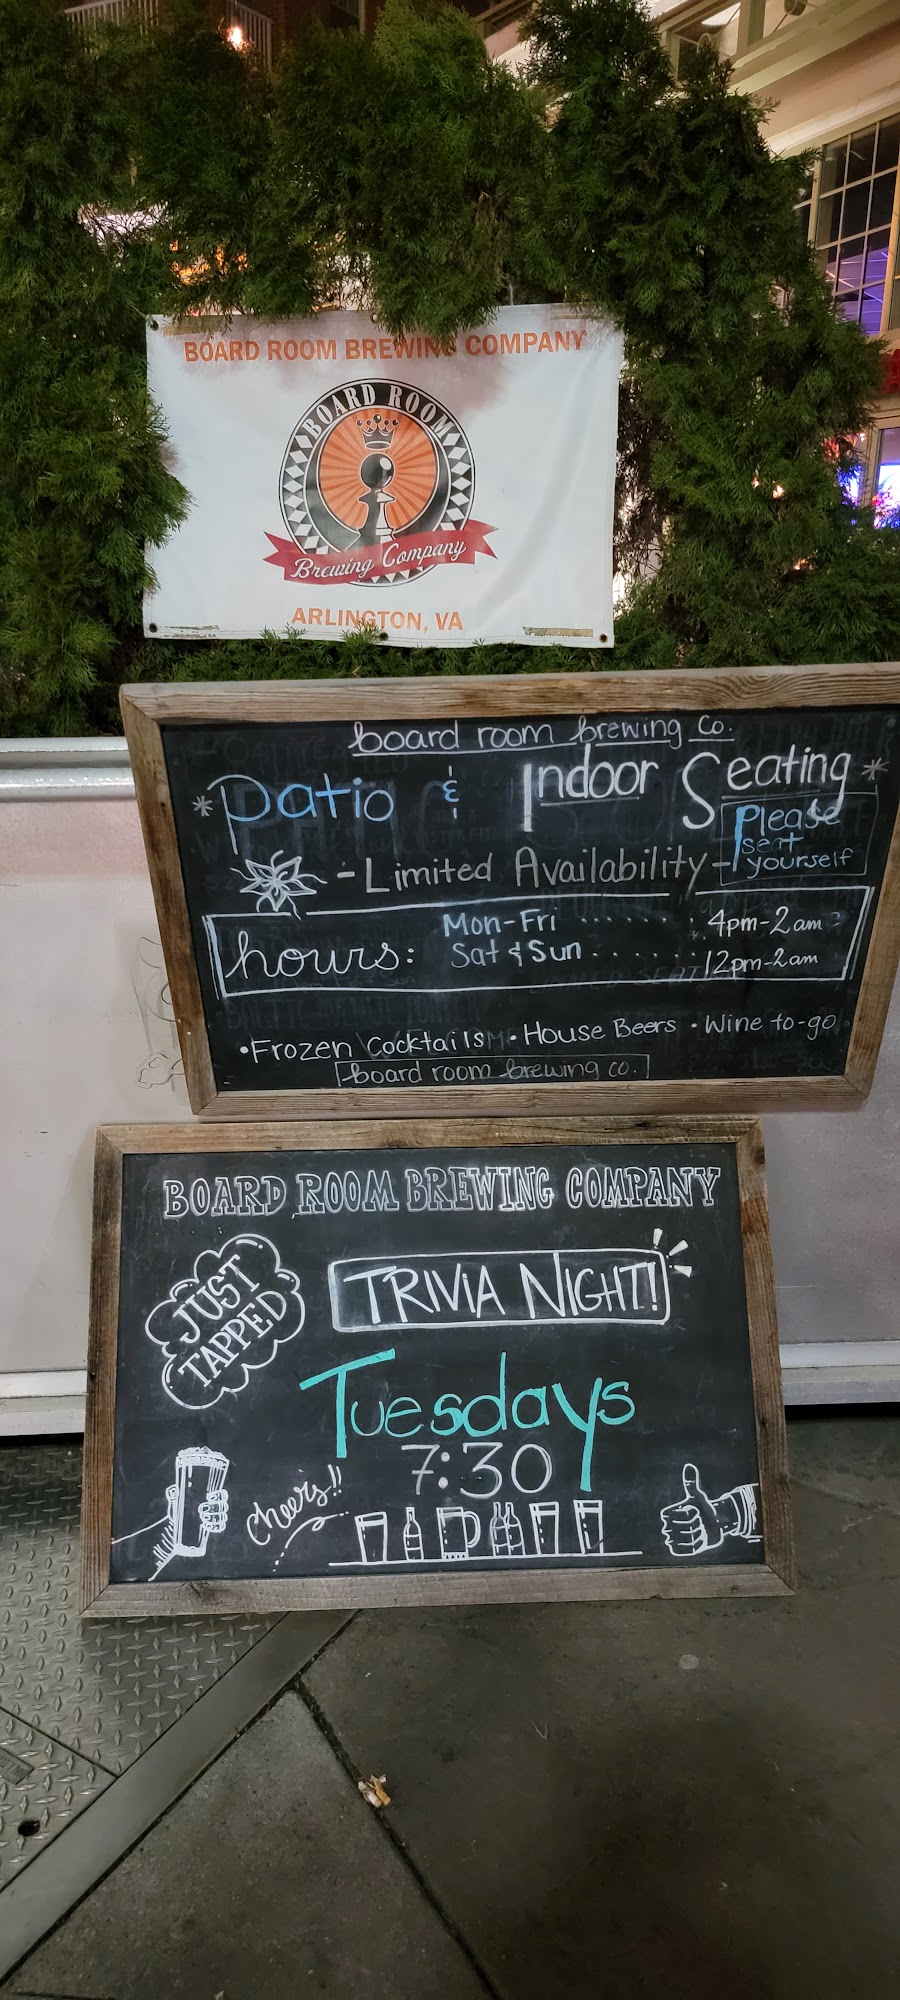 BOARD ROOM BREWING COMPANY
BOARD ROOM
Brewing Company
ARLINGTON, VA
board room brewing co.
*Patio & Indoor Seating*
Please
seat
yourself
-Limited Availability-
hours:
Mon-Fri . . . . . . . 4pm-2am
Sat & Sun . . . . . . 12pm-2am
•Frozen Cocktails •House Beers •Wine to-go
board room brewing co.
BOARD ROOM BREWING COMPANY
JUST
TAPPED
TRIVIA NIGHT!
Tuesdays
7:30
Cheers!!